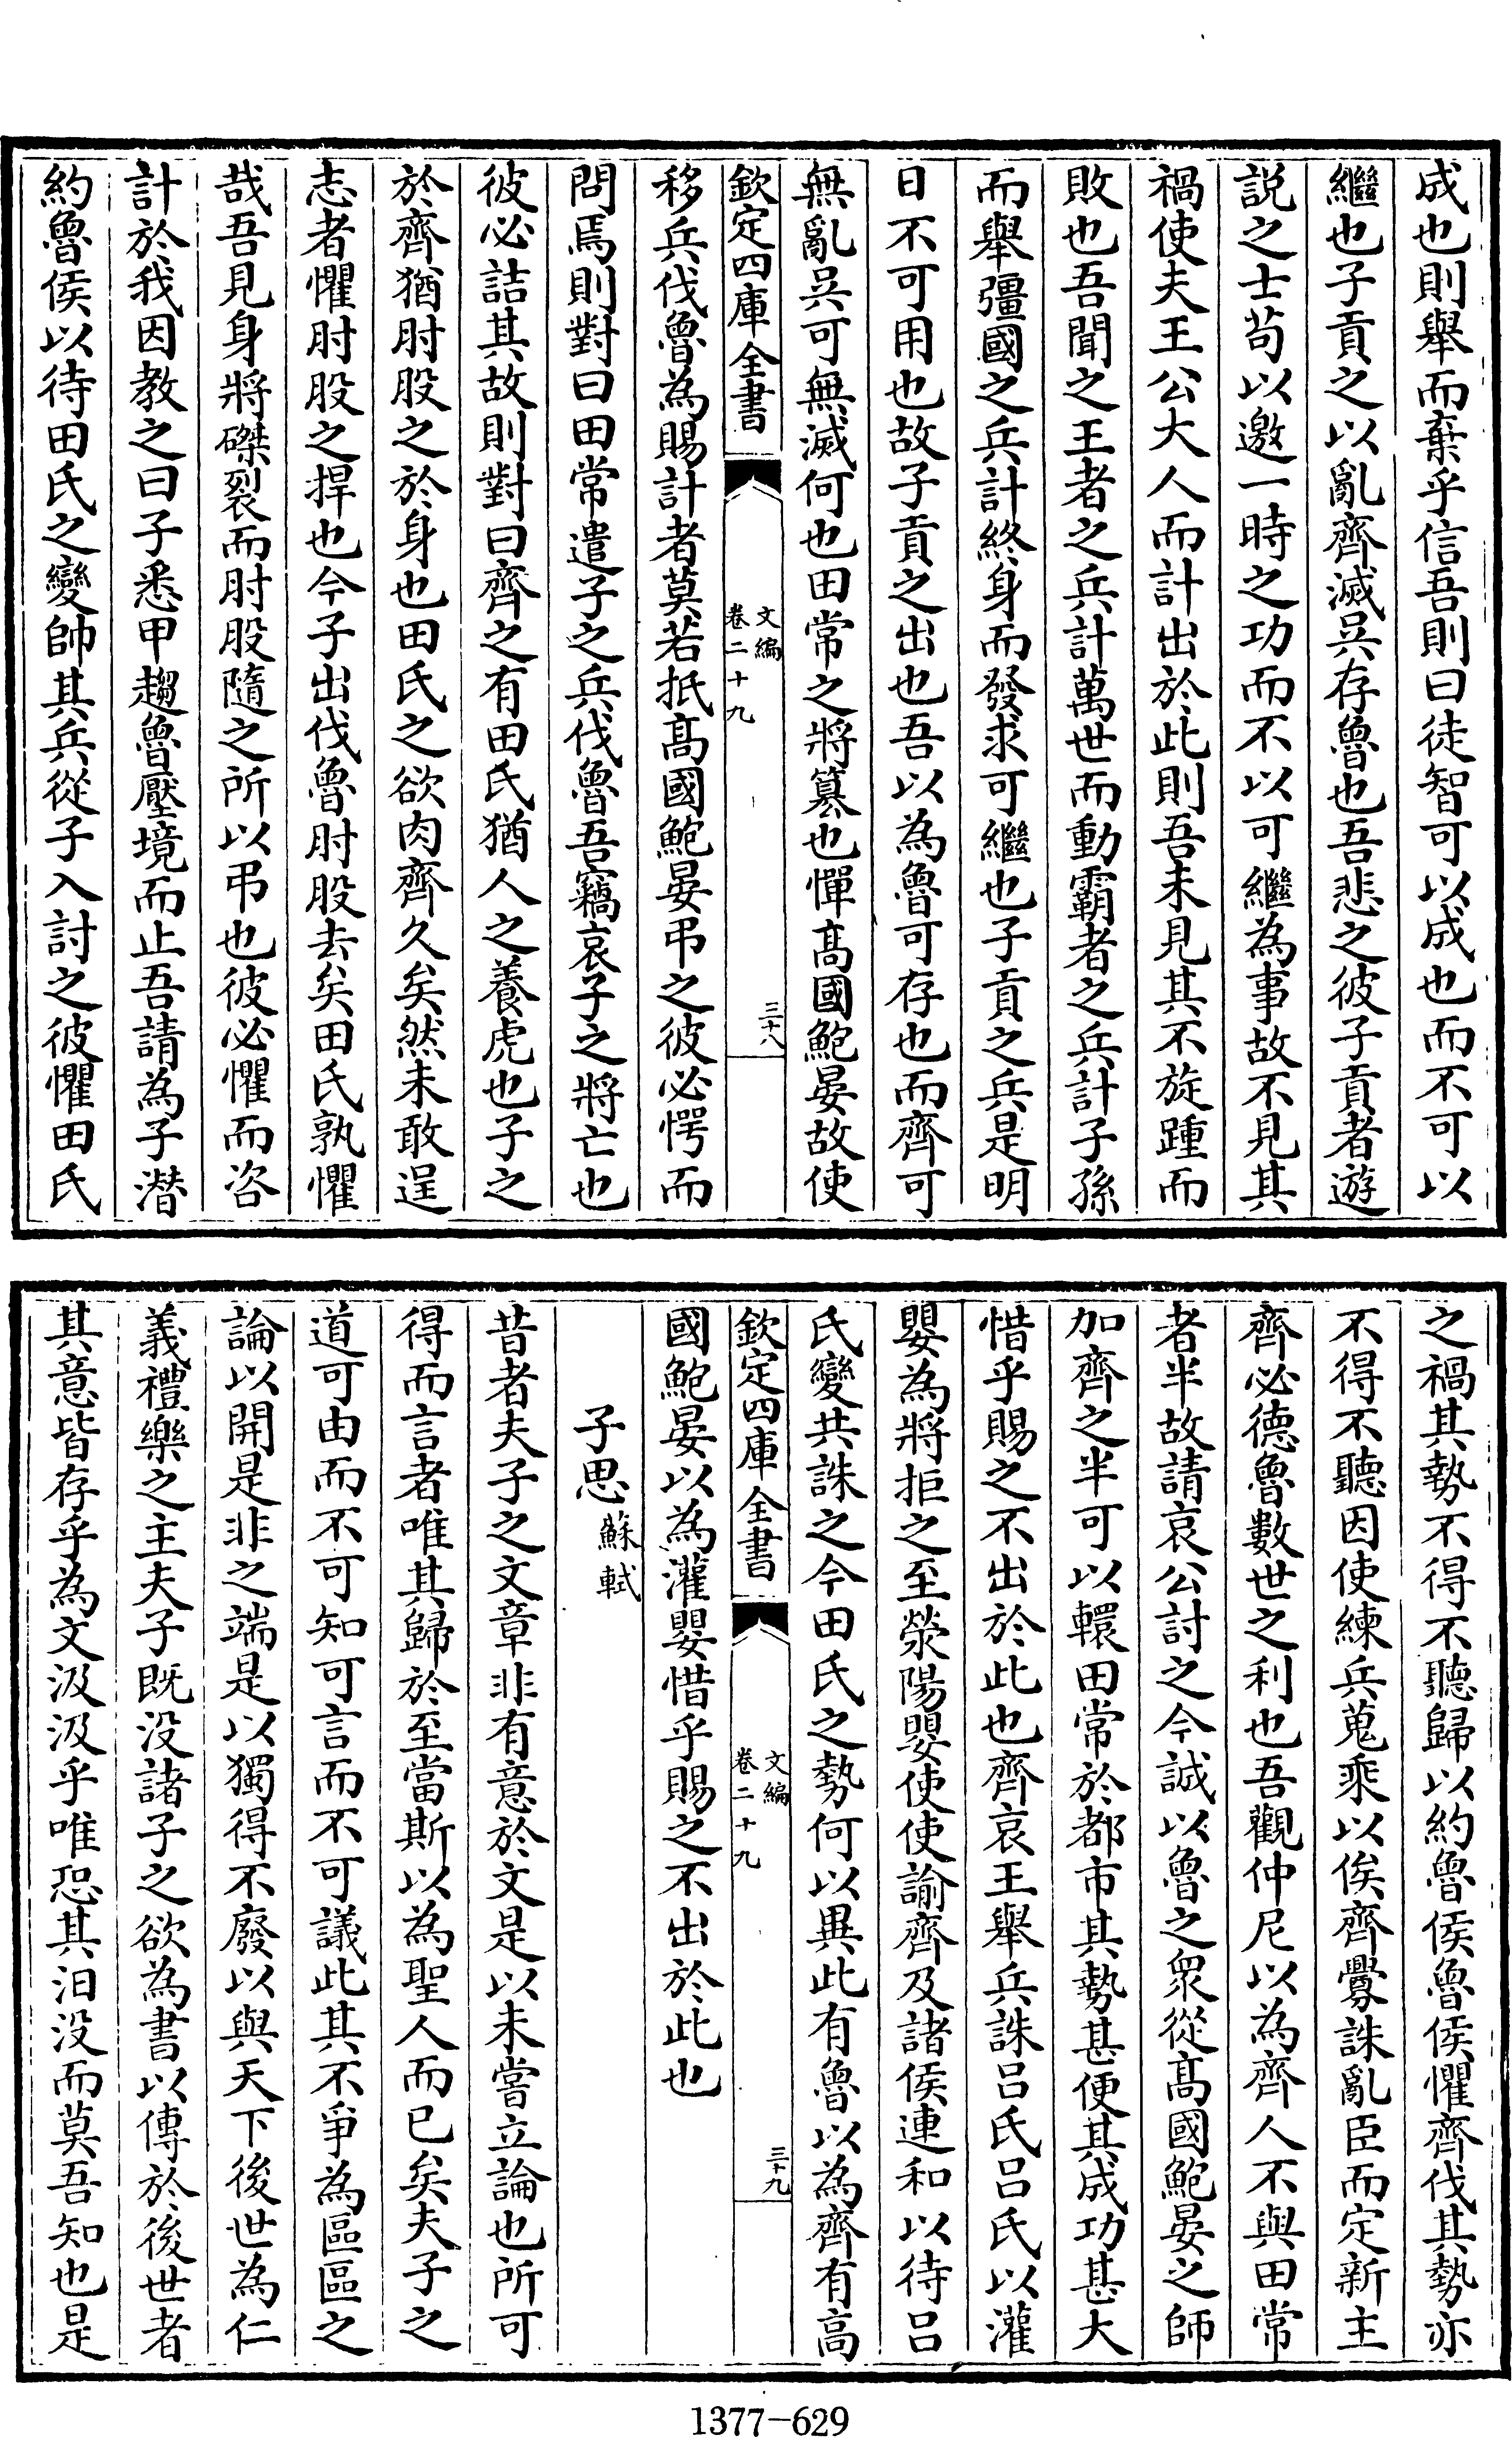 成也則舉而棄乎信吾則曰徒智可以成也而不可以
繼也子貢之以亂齊滅吳存魯也吾悲之彼子貢者遊
説之士苟以邀一時之功而不以可繼為事故不見其
禍使夫王公大人而計出於此則吾未見其不旋踵而
敗也吾聞之王者之兵計萬世而動霸者之兵計子孫
而舉彊國之兵計終身而發求可繼也子貢之兵是明
日不可用也故子貢之出也吾以為魯可存也而齊可
無亂吳可無滅何也田常之將簒也憚髙國鮑晏故使
欽定四庫全書
文編
卷二十九
三十八
移兵伐魯為賜計者莫若抵髙國鮑晏弔之彼必愕而
問焉則對曰田常遣子之兵伐魯吾竊哀子之將亡也
彼必詰其故則對曰齊之有田氏猶人之養虎也子之
於齊猶肘股之於身也田氏之欲肉齊久矣然未敢逞
志者懼肘股之捍也今子出伐魯肘股去矣田氏孰懼
哉吾見身將磔裂而肘股隨之所以弔也彼必懼而咨
計於我因教之曰子悉甲趨魯壓境而止吾請為子潛
約魯侯以待田氏之變帥其兵從子入討之彼懼田氏
之禍其勢不得不聽歸以約魯侯魯侯懼齊伐其勢亦
不得不聽因使練兵蒐乘以俟齊釁誅亂臣而定新主
齊必德魯數世之利也吾觀仲尼以為齊人不與田常
者半故請哀公討之今誠以魯之衆從髙國鮑晏之師
加齊之半可以轘田常於都市其勢甚便其成功甚大
惜乎賜之不出於此也齊哀王舉兵誅吕氏吕氏以灌
嬰為將拒之至滎陽嬰使使諭齊及諸侯連和以待吕
氏變共誅之今田氏之勢何以異此有魯以為齊有高
欽定四庫全書
文編
卷二十九
三十九
國鮑晏以為灌嬰惜乎賜之不出於此也
子思 蘇軾
昔者夫子之文章非有意於文是以未嘗立論也所可
得而言者唯其歸於至當斯以為聖人而已矣夫子之
道可由而不可知可言而不可議此其不爭為區區之
論以開是非之端是以獨得不廢以與天下後世為仁
義禮樂之主夫子既没諸子之欲為書以傳於後世者
其意皆存乎為文汲汲乎唯恐其汨没而莫吾知也是
1377-629